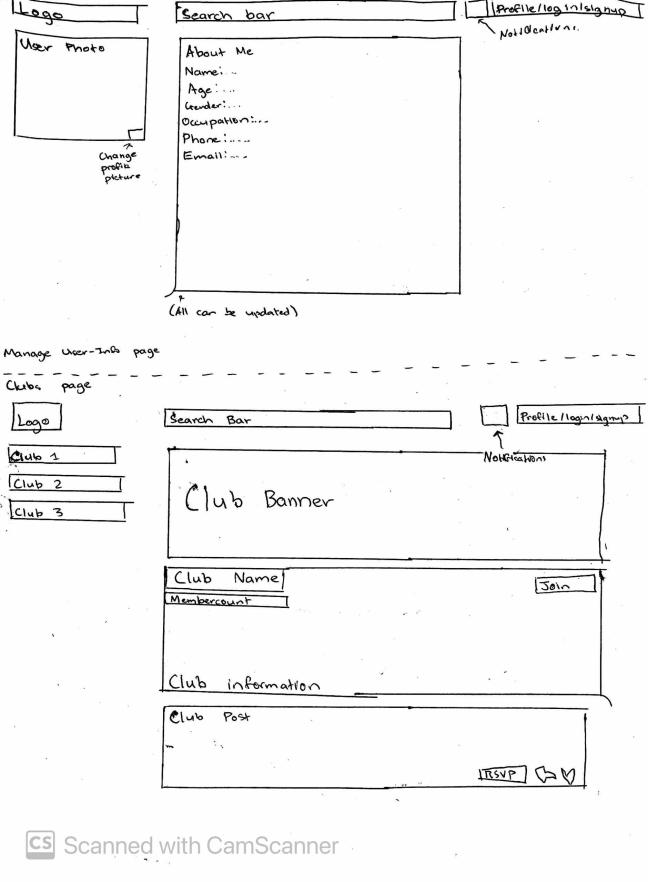 Logo
Search bar
Profile/login/signup
Notifications.
User Photo
Change
profile
picture
About Me
Name:...
Age:...
Gender:...
Occupation:...
Phone:....
Email:....
(All can be updated)
Manage User-Info page
Clubs page
Logo
Search Bar
Profile/login/signup
Notifications
Club 1
Club 2
Club 3
Club Banner
Club Name
Join
Membercount
Club information
Club Post
RSVP
CS Scanned with CamScanner